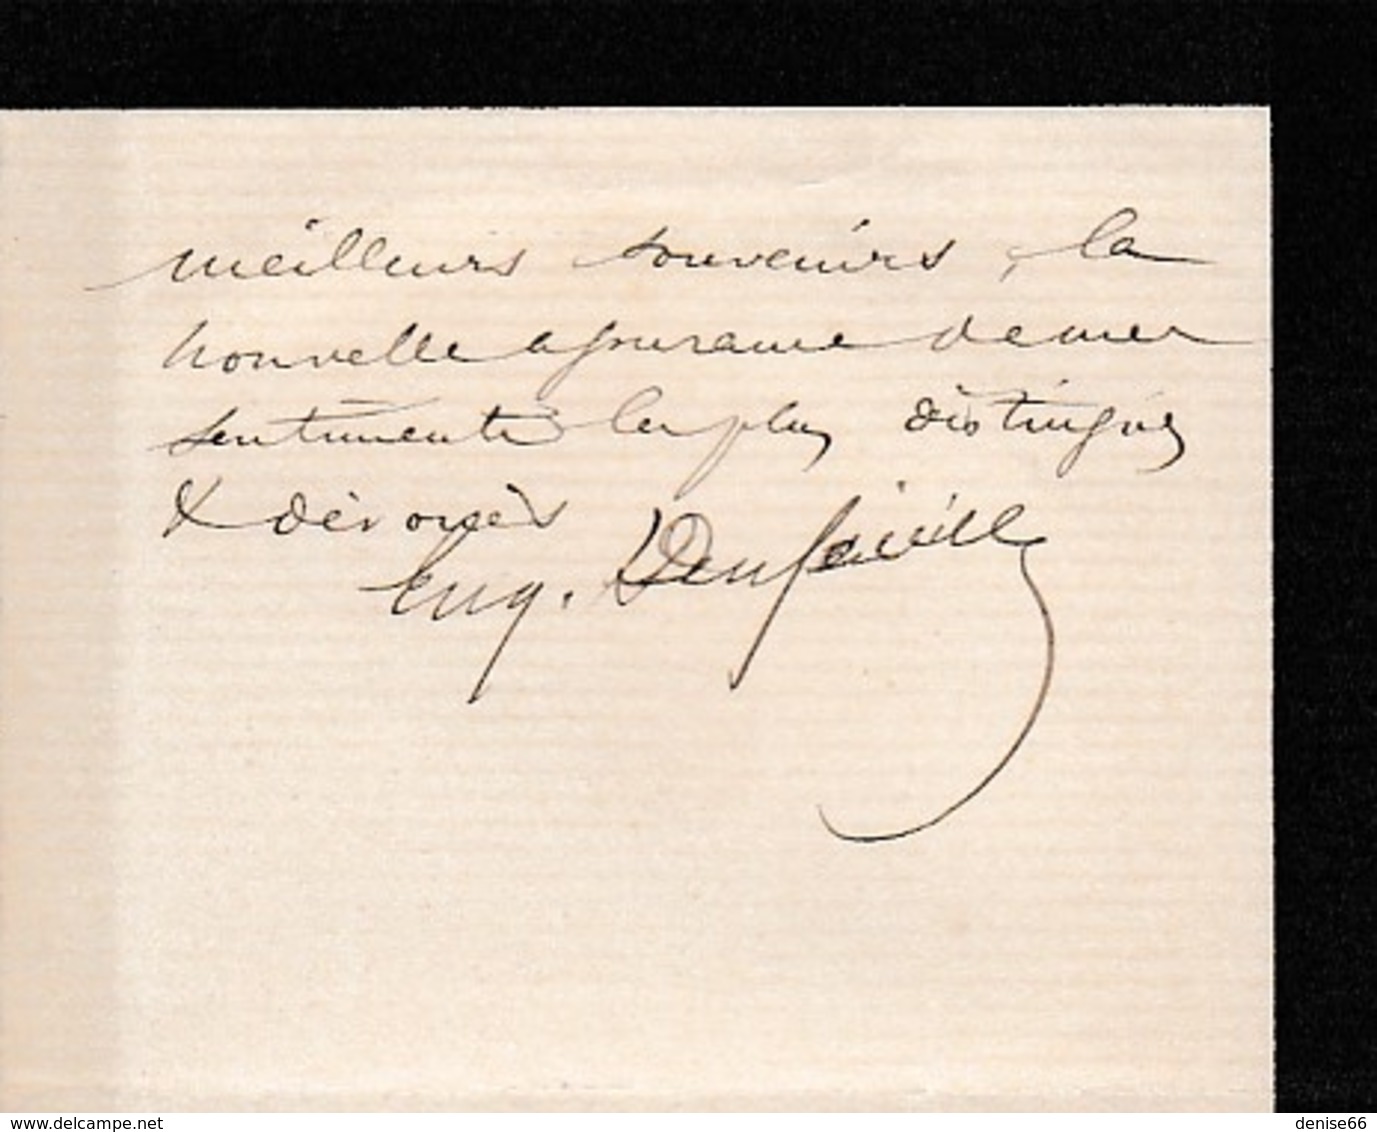 meilleurs souvenirs, la
nouvelle assurance de mes
sentiments les plus distingués
& dévoués
Eug.
www.delcampe.net
denise66